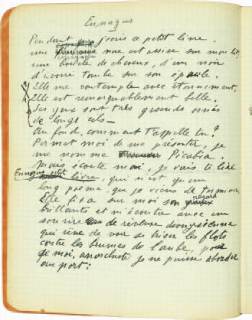 Ennazus
Pendant que j'écris ce petit livre,
une nue est assise sur mon lit,
une boucle de cheveux, d'un noir
d'ivoire tombe sur son épaule.
Elle me contemple avec étonnement,
Elle est remarquablement belle.
Ses yeux sont très grands ornés
de longs cils —
Au fond, comment t'appelle tu?
Permet moi de me présenter, je
me nomme Picabia.
Mais écoute moi, je vais te lire
Ennazus livre, qui n'est qu'un
long poème que je viens de terminer
Elle fixa sur mon son regard
brillante et m'écouta avec un
sourire de
qui rive de voir si bien les flots
contre les brumes de l'aube, pour
que moi, anachorète je ne puisse aborder
au port: